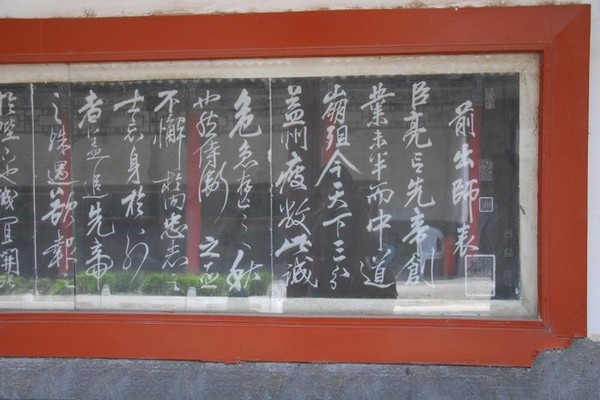 前出師表
臣亮言先帝創
業未半而中道
崩殂今天下三分
益州疲敝此誠
危急存亡之秋
也然侍衛之臣
不懈於內忠志之
士忘身於外
者蓋追先帝
之殊遇欲報
於陛下也誠宜開